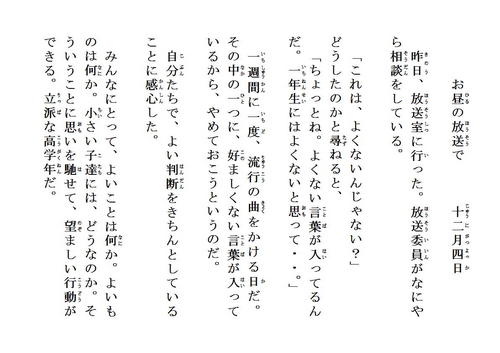 お昼の放送で　　十二月四日
昨日、放送室に行った。放送委員がなにや
ら相談をしている。
「これは、よくないんじゃない？」
どうしたのかと尋ねると、
「ちょっとね。よくない言葉が入ってるん
だ。一年生にはよくないと思って・・。」
一週間に一度、流行の曲をかける日だ。
その中の一つに、好ましくない言葉が入って
いるから、やめておこうというのだ。
自分たちで、よい判断をきちんとしている
ことに感心した。
みんなにとって、よいことは何か。よいも
のは何か。小さい子達には、どうなのか。そ
ういうことに思いを馳せて、望ましい行動が
できる。立派な高学年だ。